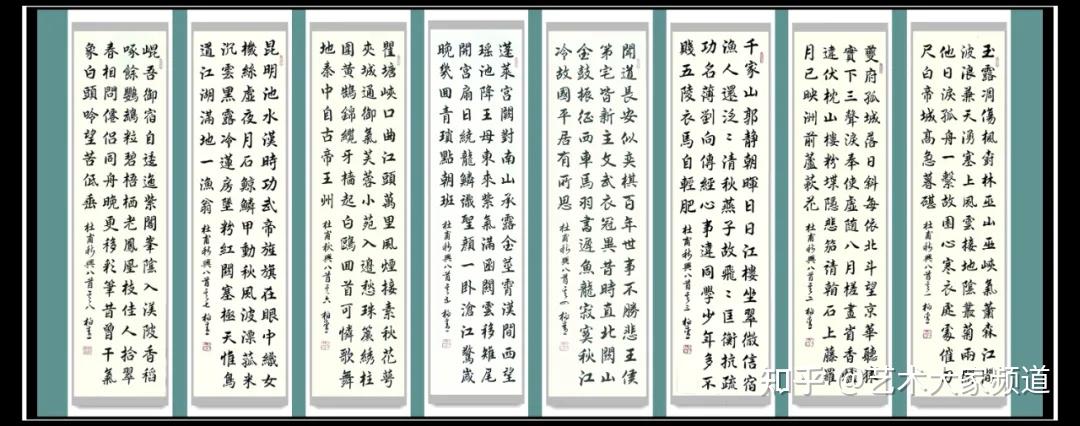 玉露凋傷楓樹林巫山巫峽氣蕭森江間
波浪兼天湧塞上風雲接地陰叢菊兩
他日淚孤舟一繫故園心寒衣處〻催
尺白帝城高急暮碪 杜甫秋興八首之一
夔府孤城落日斜每依北斗望京華聽猿
實下三聲淚奉使虛隨八月槎畫省香爐
違伏枕山樓粉堞隱悲笳請看石上藤蘿
月已映洲前蘆荻花 杜甫秋興八首之二
千家山郭靜朝暉日日江樓坐翠微信宿
漁人還泛〻清秋燕子故飛〻匡衡抗疏
功名薄劉向傳經心事違同學少年多不
賤五陵衣馬自輕肥 杜甫秋興八首之三
聞道長安似奕棋百年世事不勝悲王侯
第宅皆新主文武衣冠異昔時直北關山
金鼓振征西車馬羽書遲魚龍寂寞秋江
冷故國平居有所思 杜甫秋興八首之四
蓬萊宮闕對南山承露金莖霄漢間西望
瑤池降王母東來紫氣滿函關雲移雉尾
開宮扇日繞龍鱗識聖顏一卧滄江驚歲
晚幾回青瑣點朝班 杜甫秋興八首之五
瞿塘峽口曲江頭萬里風煙接素秋花萼
夾城通御氣芙蓉小苑入邊愁珠簾綉柱
圍黃鵠錦纜牙檣起白鷗回首可憐歌舞
地秦中自古帝王州 杜甫秋興八首之六
昆明池水漢時功武帝旌旗在眼中織女
機絲虛夜月石鯨鱗甲動秋風波漂菰米
沉雲黑露冷蓮房墜粉紅關塞極天惟鳥
道江湖滿地一漁翁 杜甫秋興八首之七
崐吾御宿自逶迤紫閣峯陰入渼陂香稻
啄餘鸚鵡粒碧梧栖老鳳凰枝佳人拾翠
春相問僊侶同舟晚更移彩筆昔曾干氣
象白頭吟望苦低垂 杜甫秋興八首之八
知乎 @艺术大家频道